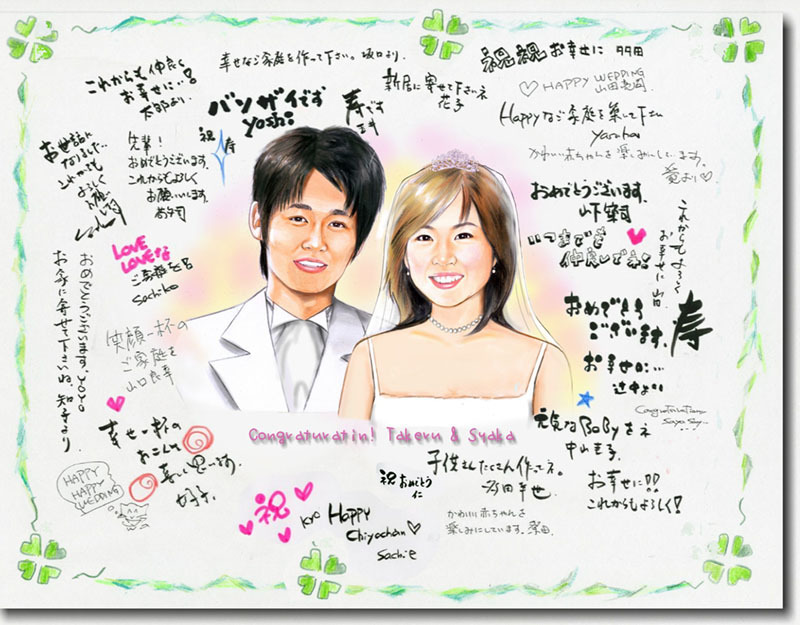 これからも仲良く
お幸せに…!
太郎より
幸せなご家庭を作って下さい。坂口より.
バンザイです
yoshi
寿です
新居に寄せて下さいネ
花子
祝祝お幸せに
HAPPY WEDDING
Happyなご家庭を築いて下さい
かわいい赤ちゃんを楽しみにしています。
お世話に
なりました…
これからも
よろしく
お願いし
祝
寿
先輩!
おめでとうございます。
これからもよろしく
お願いします。
おめでとうございます。
いつまでも
仲良しでネ!
これからもよろしく
お幸せに 山田
LOVE
LOVEな
ご家庭を
Sachiko
おめでとうございます。YOYO
お家に寄せて下さいね。知子より
笑顔一杯の
ご家庭を
山口良幸
おめでとう
ございます。
お幸せに…
寿
幸せ一杯の
HAPPY
HAPPY
WEDDING
Congraturatin! Takeru & Syaka
Congraturation
元気なBaByをネ
子供さんたくさん作ってネ。
祝おめでとう
仁
かわいい赤ちゃんを
楽しみにしています。
お幸せに!!
これからもよろしく!
祝
kyo Happy
Chiyochan
Sachie